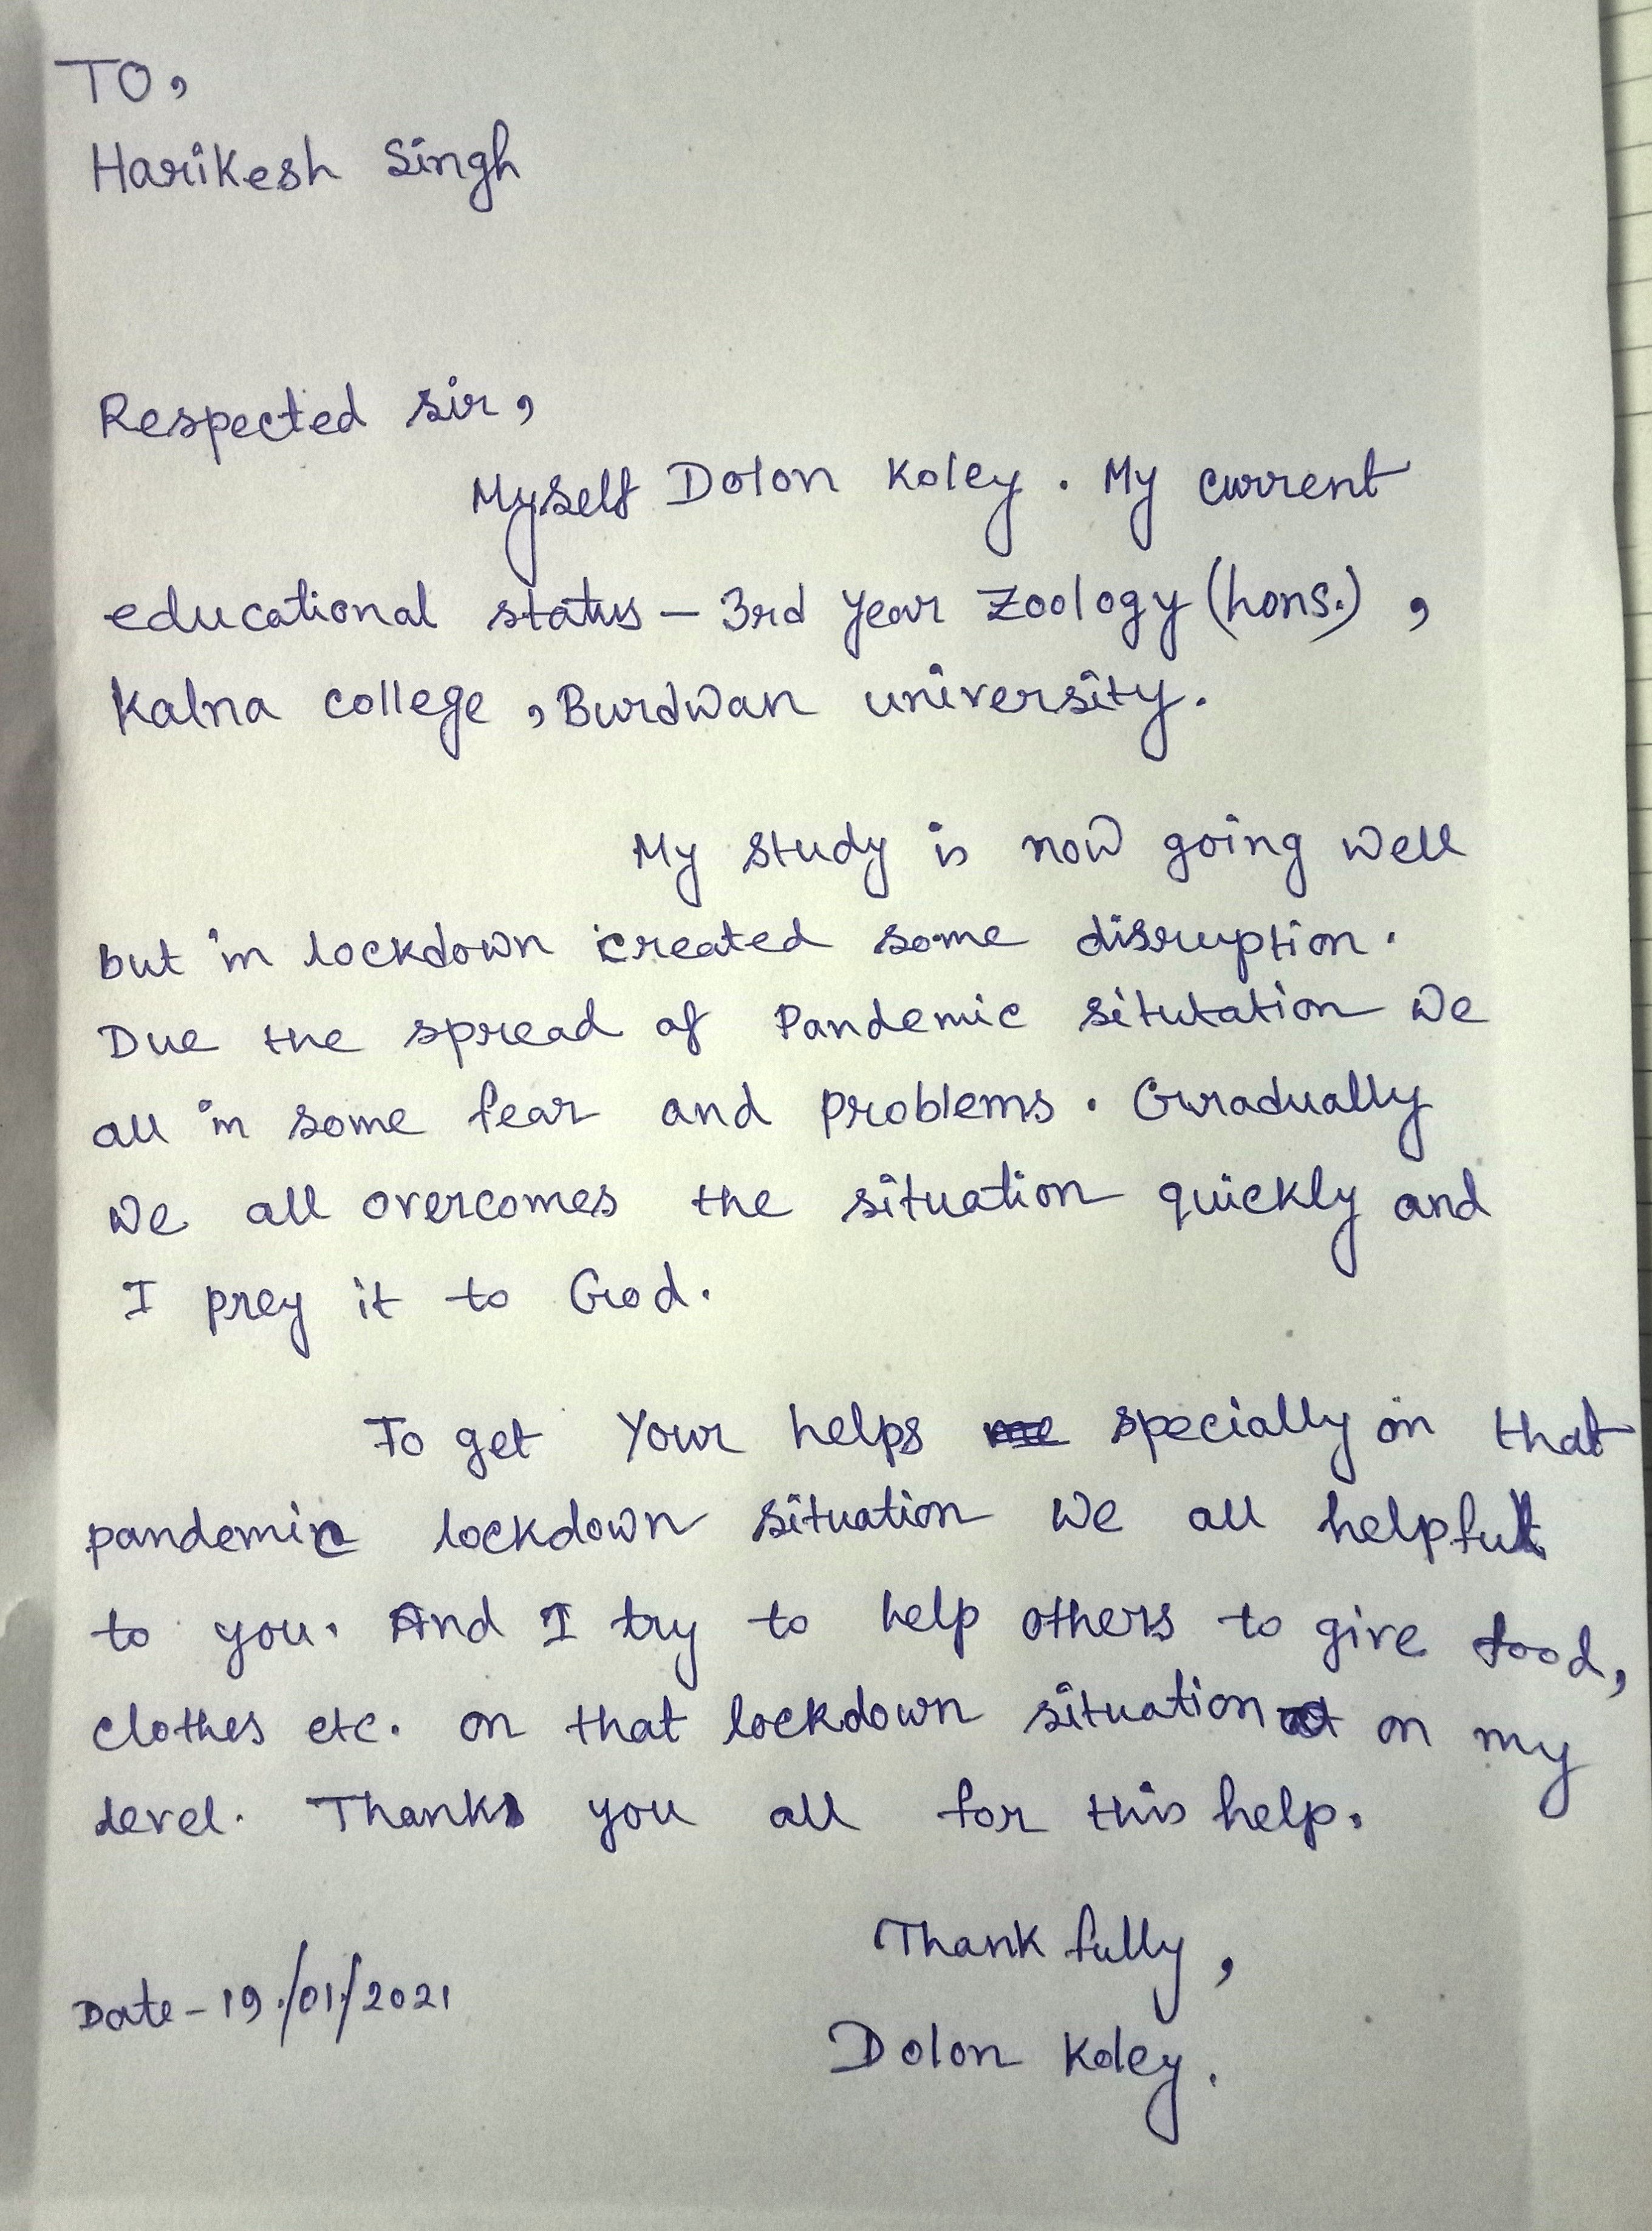 TO,
Harikesh Singh
Respected sir,
Myself Dolon Koley. My current
educational status - 3rd year Zoology (hons.),
Kalna college, Burdwan university.
My study is now going well
but in lockdown created some disruption.
Due the spread of Pandemic situtation we
all in some fear and problems. Gradually
we all overcomes the situation quickly and
I prey it to God.
To get Your helps specially on that
pandemic lockdown situation we all helpful
to you. And I try to help others to give food,
clothes etc. on that lockdown situation on my
level. Thanks you all for this help.
Thank fully,
Date - 19/01/2021
Dolon Koley.